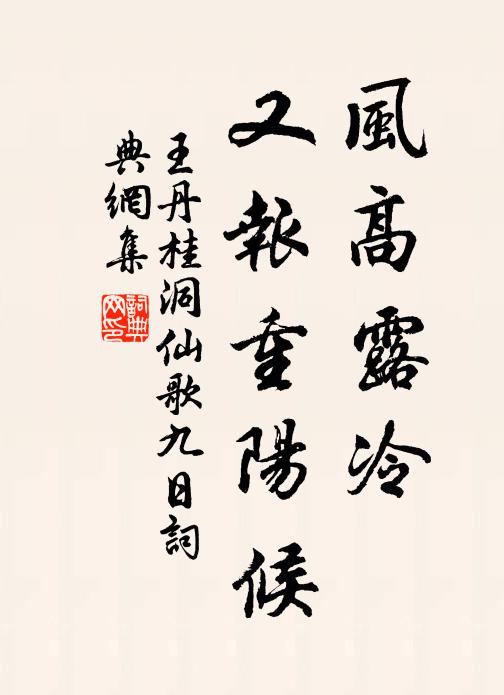 風高露冷
又報重陽候
王丹桂洞仙歌九日詞
典網集
詞典
网印